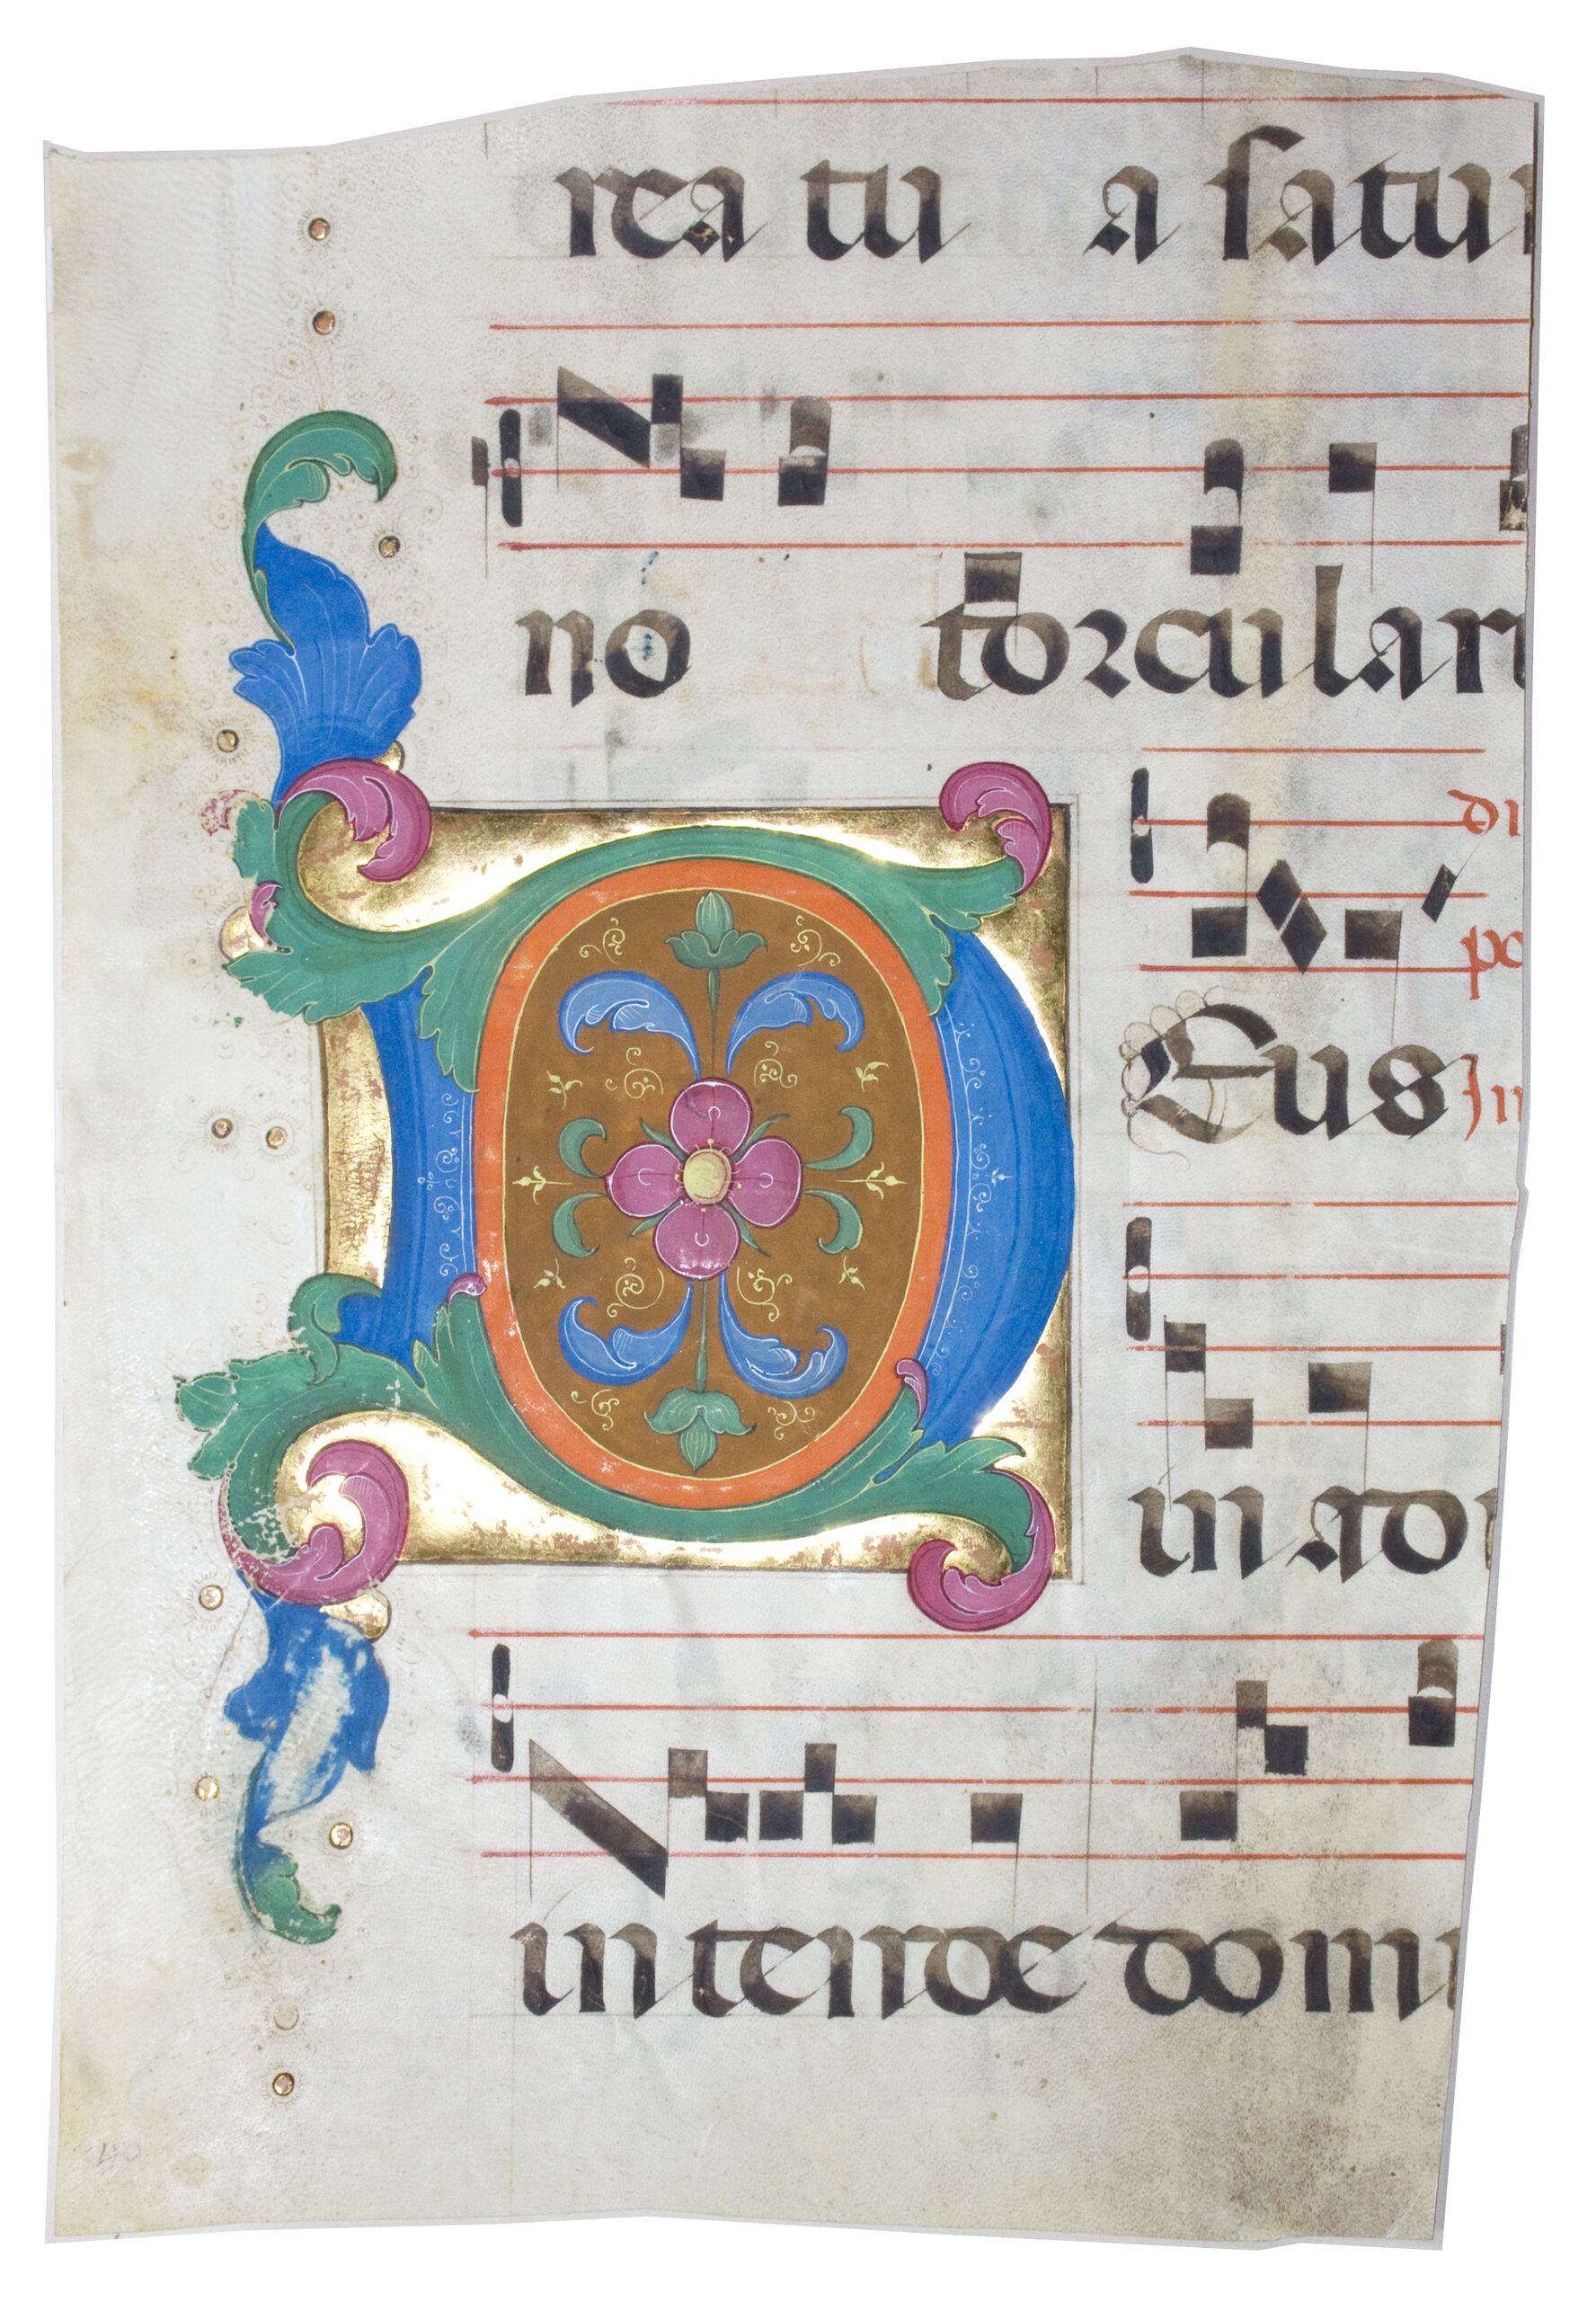 rea tu a satur
no torcular
di
po
Deus In
in adi
intende domi
40